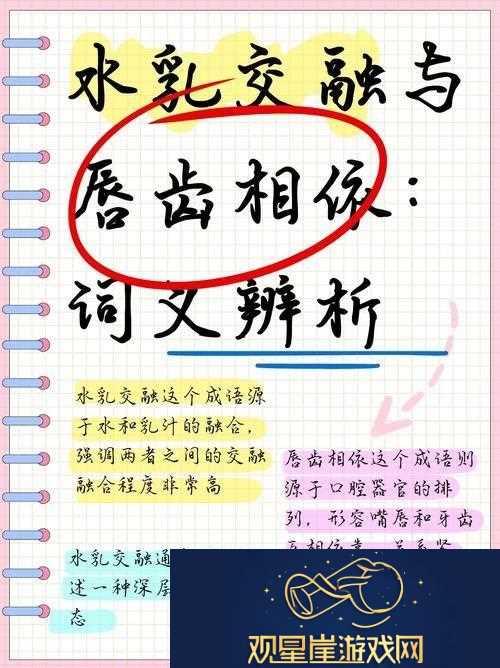 水乳交融与
唇齿相依:
词义辨析
水乳交融这个成语源
于水和乳汁的融合,
强调两者之间的交融
融合程度非常高
唇齿相依这个成语则
源于口腔器官的排
列, 形容嘴唇和牙齿
水乳交融通
述一种深层
态
观星崖游戏网